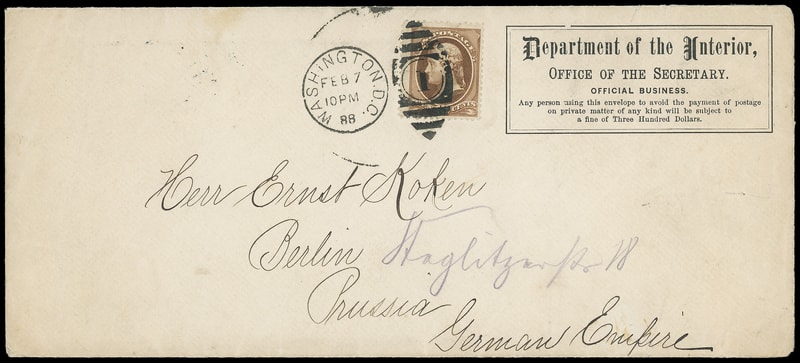 WASHINGTON, D.C.
FEB 7
10PM
88
POSTAGE
1
CENTS
Department of the Interior,
OFFICE OF THE SECRETARY.
OFFICIAL BUSINESS.
Any person using this envelope to avoid the payment of postage
on private matter of any kind will be subject to
a fine of Three Hundred Dollars.
Herr Ernst Koken
Berlin Steglitzerstr 18
Prussia
German Empire